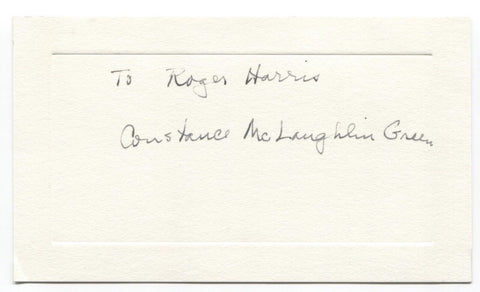 To Roger Harris
Constance McLaughlin Green